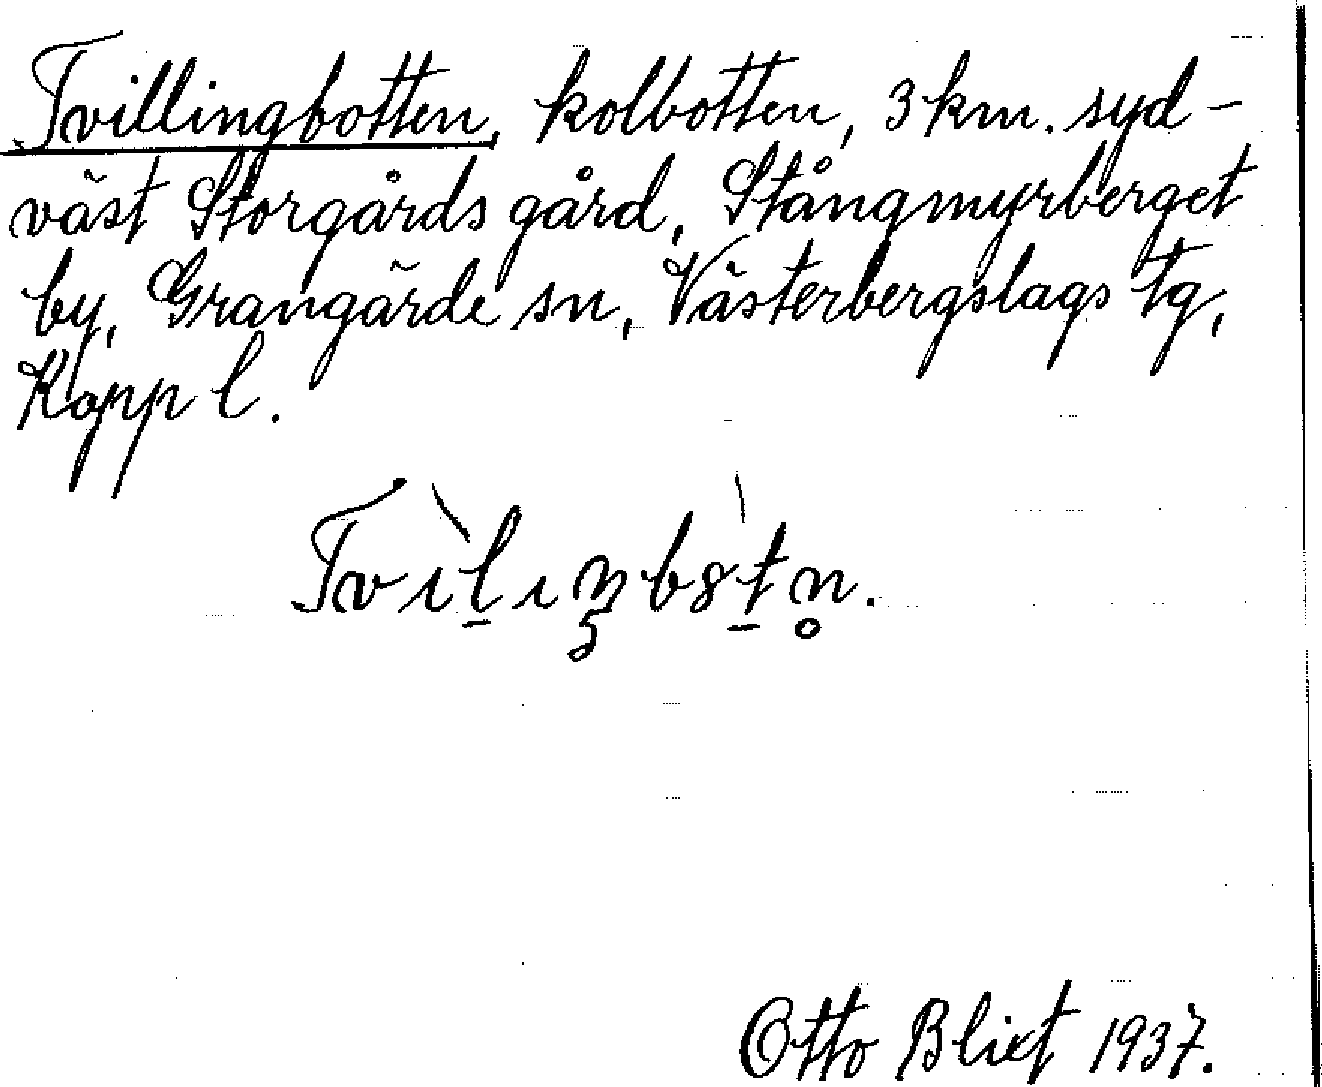 Tvillingbotten, kolbotten, 3 km. syd-
väst Storgårds gård, Stångmyrberget
by, Grangärde sn, Västerbergslags tg,
Kopp l.
Tvìl̠ıŋb8̀t̠n̥.
Otto Blixt 1937.